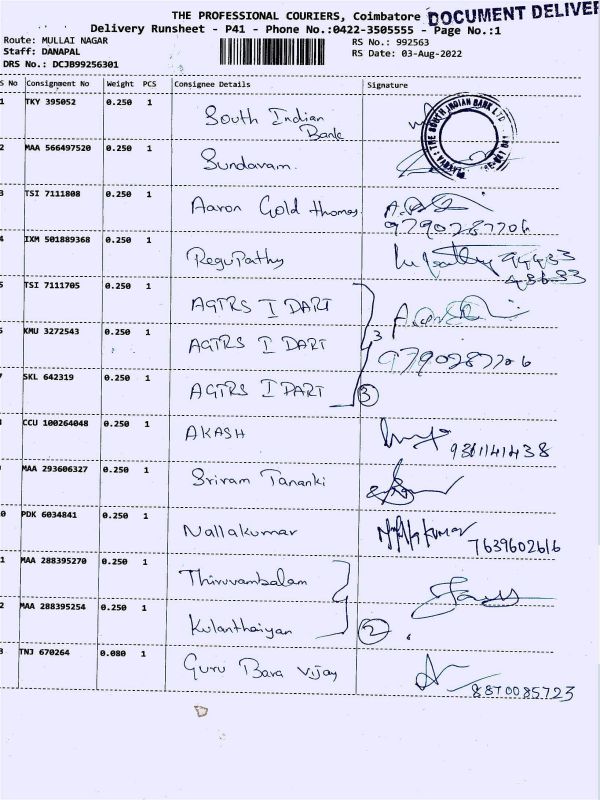 THE PROFESSIONAL COURIERS, Coimbatore DOCUMENT DELIVER
Delivery Runsheet - P41 - Phone No.:0422-3505555 - Page No.:1
Route: MULLAI NAGAR
RS No.: 992563
Staff: DANAPAL
RS Date: 03-Aug-2022
DRS No.: DCJB99256301
S No Consignment No Weight PCS Consignee Details Signature
1 TKY 395052 0.250 1 South Indian
Bank
THE SOUTH INDIAN BANK LTD
2 MAA 566497520 0.250 1 Sundaram.
3 TSI 7111808 0.250 1 Aaron Gold thomas.
9790287706
4 IXM 501889368 0.250 1 ReguPathy 99433
48683
5 TSI 7111705 0.250 1 AGTRS I DART
6 KMU 3272543 0.250 1 AGTRS I DART 3
9790287706
7 SKL 642319 0.250 1 AGTRS I DART 3
8 CCU 100264048 0.250 1 AKASH 9361141438
9 MAA 293606327 0.250 1 Sriram Tananki
0 PDK 6034841 0.250 1 Nallakumar Nallakumar
7639602616
1 MAA 288395270 0.250 1 Thiruvambalam
2 MAA 288395254 0.250 1 Kulanthaiyan 2
3 TNJ 670264 0.080 1 Guru Bara Vijay
8870085723